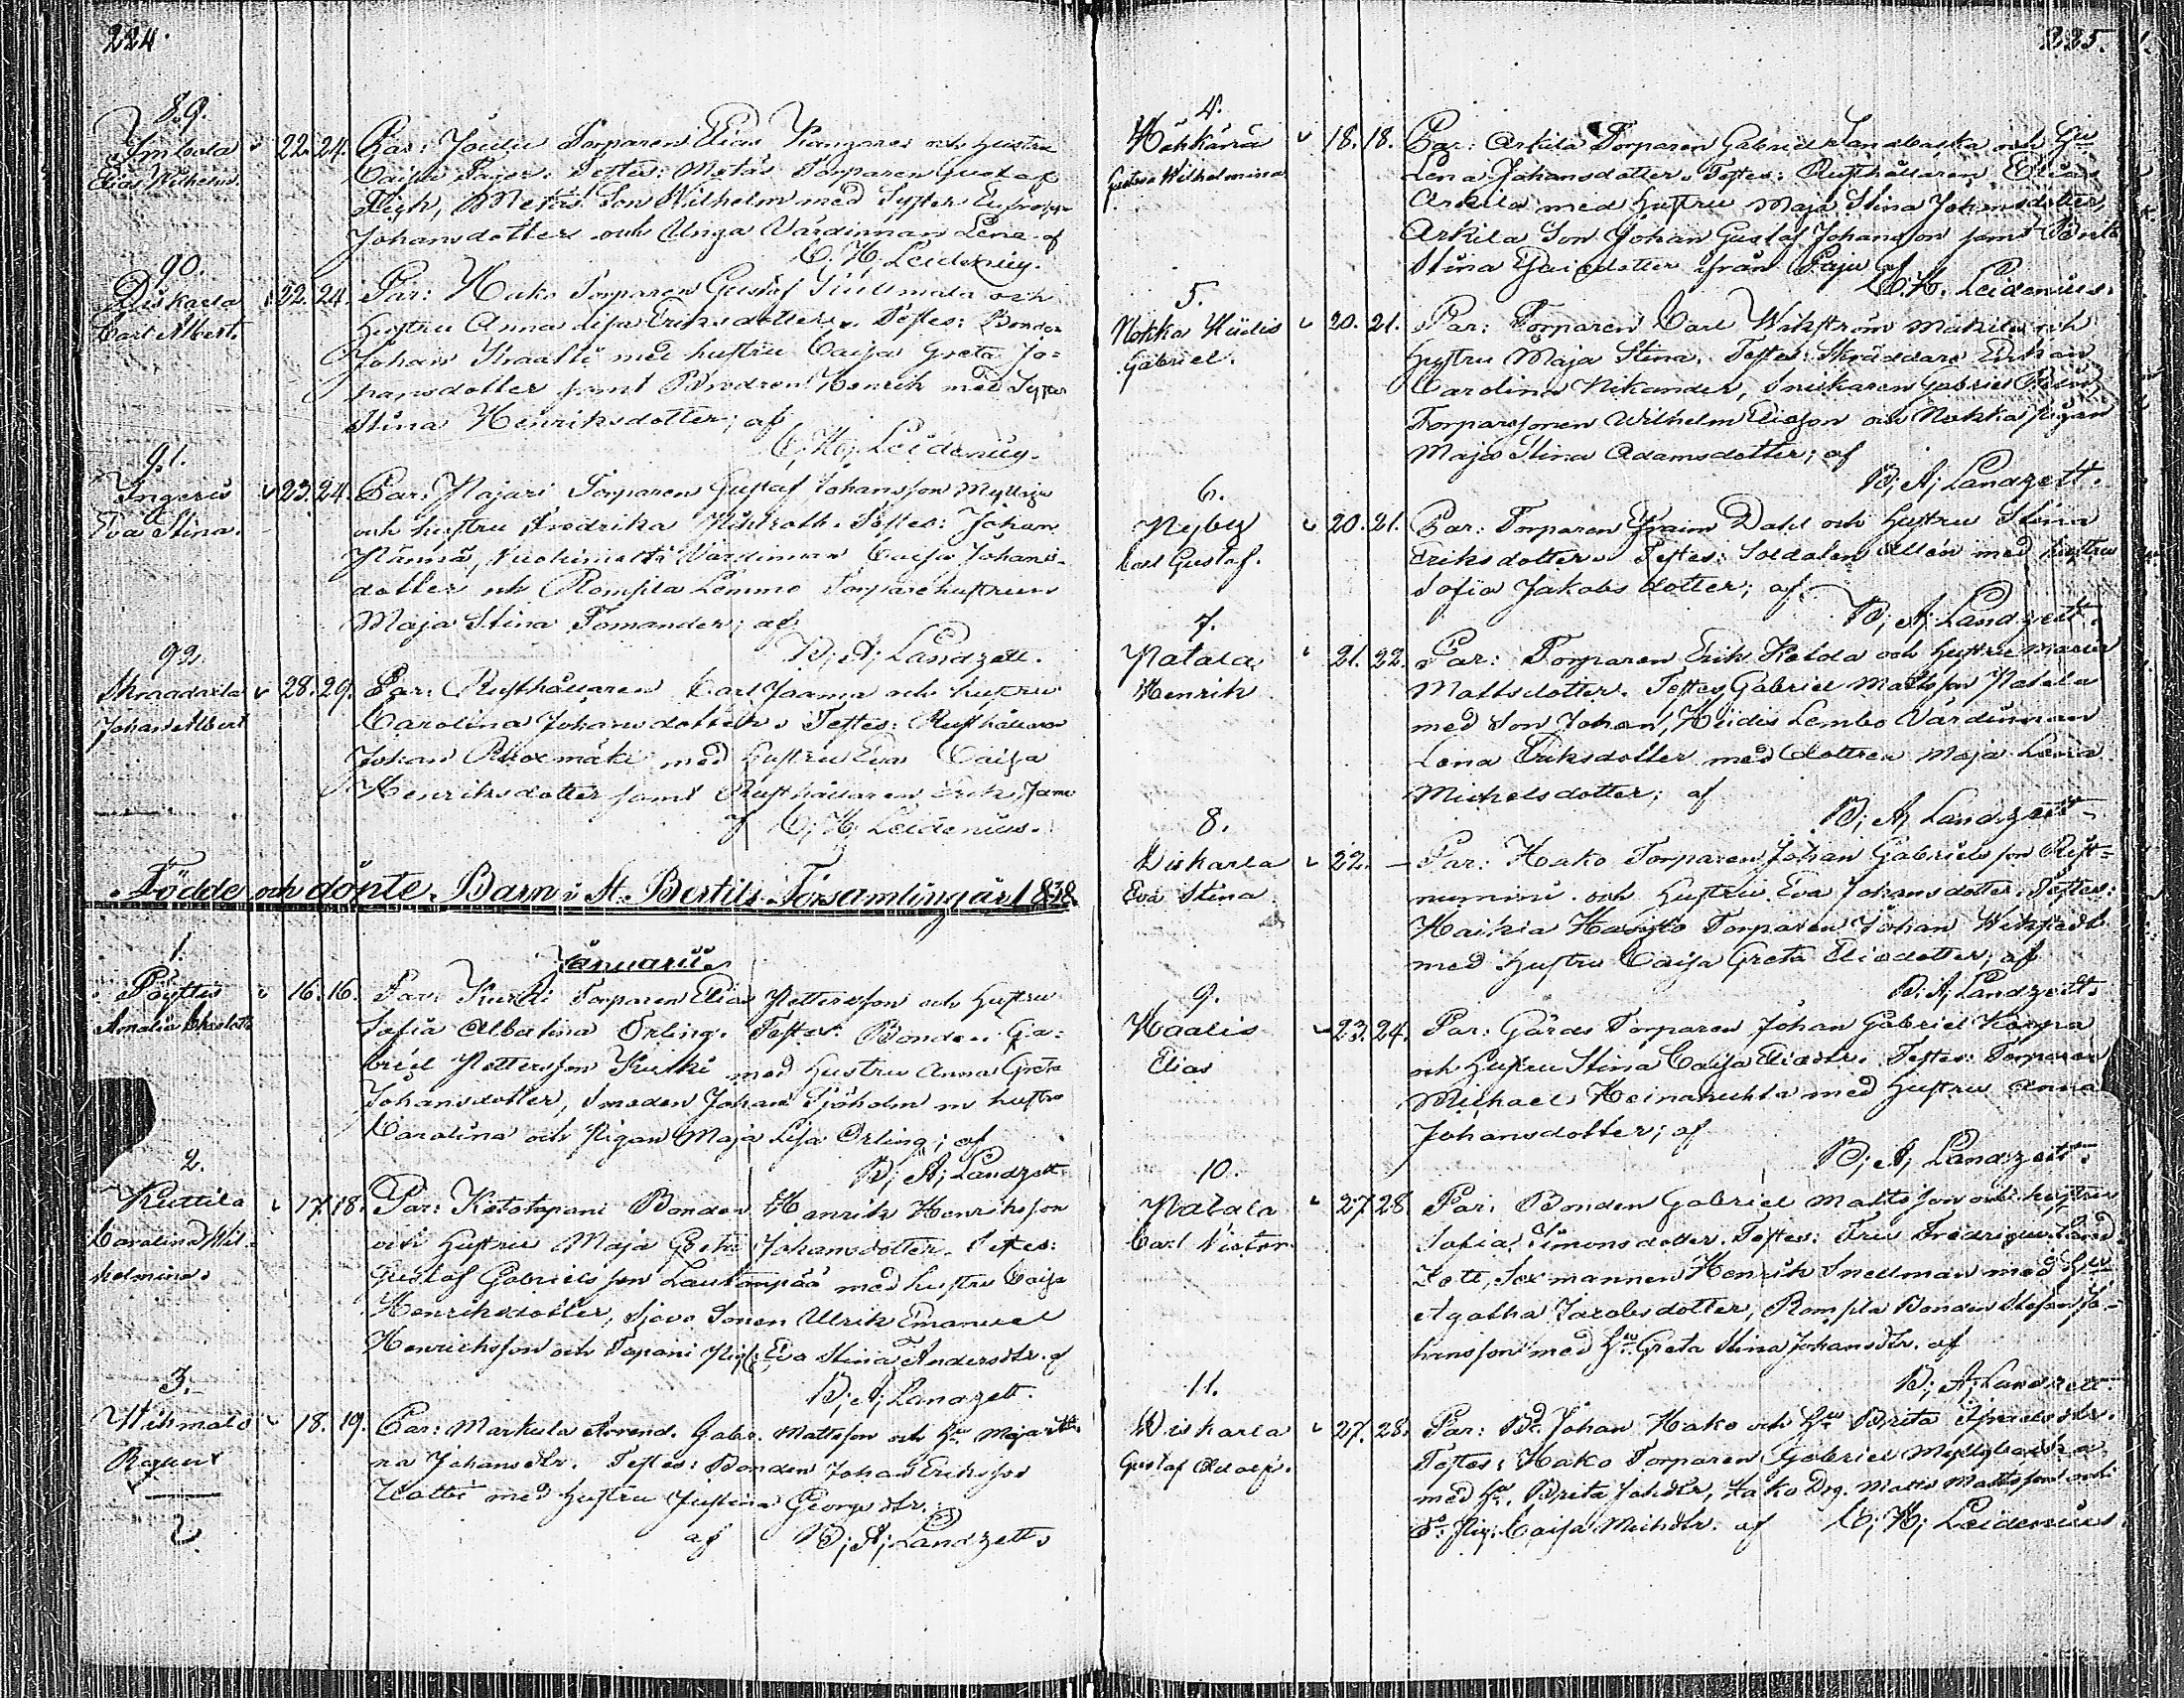 224.
89.
Imbala 22. 24. Par: Torparen Elias Kangare och hustru
Elias Wilhelm. Caisa Testes: Metäs Torparen Gustaf
Metäs Son Wilhelm med Syster
Johansdotter och Unga Värdinnan Lena af
C. H. Leidenius.
90.
Diskarla 22. 24. Par: Hako Torparen Gustaf och
Carl Albert. hustru Anna Lisa Eriksdotter. Testes: Bonden
Johan med hustru Caisa Greta Jo-
hansdotter samt Henrik med Syster
Stina Henriksdotter; af
C, H, Leidenius.
91.
Ingeris 23. 24. Par: Najari Torparen Gustaf Johansson
Eva Stina. och hustru Fredrika Testes: Johan
Värdinnan Caisa Johans-
dotter och Rompsa Lemmo Torpare hustrun
Maja Stina Tomander; af
B; A; Landzett.
92.
Skraddarla 28. 29. Par: Rusthållaren Carl Jaama och hustru
Johan Albert Carolina Johansdotter. Testes: Rusthållaren
Johan med hustru Eva Caisa
Henriksdotter samt Rusthållaren Erik
af C; H; Leidenius.
Födde och dönte Barn i St. Bertils Församling år 1838.
Januarii.
1.
Pöyttis 16. 16. Par: Kurki Torparen Elias Pettersson och Hustru
Amalia Charlotta Sofia Albertina Örling. Testes: Bonden Ga-
briel Pettersson Kurki med Hustru Anna Greta
Johansdotter, Smeden Johan Sjöholm m hustru
Carolina och Pigan Maja Lisa Örling; af
B; A; Landzett.
2.
Kuttila 17. 18. Par: Bonden Henrik Henriksson
Carolina Wil- och Hustru Maja Greta Johansdotter. Testes:
helmina. Gustaf Gabrielsson Laukanpää med hustru Caisa
Henriksdotter, Sonen Ulrik Emanuel
Henrichsson och Tapani Pig: Eva Stina Andersdtr. af
B; A; Landzett.
3.
Wihmalo 18. 19. Par: Markula Arrend. Gabr. Mattsson och Hu Maja Sti-
na Johansdtr. Testes: Bonden Johan Eriksson
Uotti med hustru Justina Georgsdtr.
af B; A; Landzett.
2
225.
4.
Hähkänä 18. 18. Par: Arkila Torparen Gabriel och Hu
Gustava Wilhelmina Lena Johansdotter. Testes: Rusthållaren Elias
Arkila med hustru Maja Stina Johansdotter,
Arkila Son Johan Gustaf Johansson samt
Stina ifrån Paju af
C. H. Leidenius.
5.
Nokka Hiidis 20. 21. Par: Torparen Carl Wikström Mäkila och
Gabriel. Hustru Maja Stina. Testes: Skräddare Enkan
Carolina Nikander, Snickaren Gabriel
Torparesonen Wilhelm Eliasson och Nokka Pigan
Maja Stina Adamsdotter; af
B; A; Landzett.
6.
Nyby 20. 21. Par: Torparen Efraim Dahl och hustru Stina
Carl Gustaf. Eriksdotter. Testes: Soldaten Allén med hustru
Sofia Jakobs dotter; af
B; A; Landzett.
7.
Natala 21. 22. Par: Torparen Erik Kelda och hustru Maria
Henrik Mattsdotter. Testes, Gabriel Mattsson Natala
med Son Johan, Hiidis Lembo Värdinnan
Lena Eriksdotter med dottren Maja Lena
Michelsdotter; af
B; A; Landzett.
8.
Diskarla 22. — Par: Hako Torparen Johan Gabrielsson Rist-
Eva Stina numini och Hustru Eva Johansdotter. Testes:
Haikia Torparen Johan Wekstedt
med hustru Caisa Greta Eliedotter; af
B; A; Landzett.
9.
Haalis 23. 24. Par: Gårds Torparen Johan Gabriel Karpa
Elias och Hustru Stina Caisa Eliaedr. Testes: Torparen
Michael Heinahuhta med Hustru Anna
Johansdotter; af
B; A; Landzett.
10.
Natala 27. 28. Par: Bonden Gabriel Mattsson och hustru
Carl Victor. Sofia Simonsdotter. Testes: Fru Fredrique Land-
zett, Sexmannen Henrik Snellman med Hu
Agatha Jacobsdotter, Rompsa Bonden Stefan Jo-
hansson med Hu Greta Stina Johansdtr. af
B; A; Landzett.
11.
Diskarla 27. 28. Par: Bd Johan Hako och Hu Brita
Gustaf Adolf. Testes: Hako Torparen Gabriel
med Hu. Brita Johdtr, Hako Drg. Matts Mattsson och
Pig. Caisa Michdtr. af C; H; Leidenius